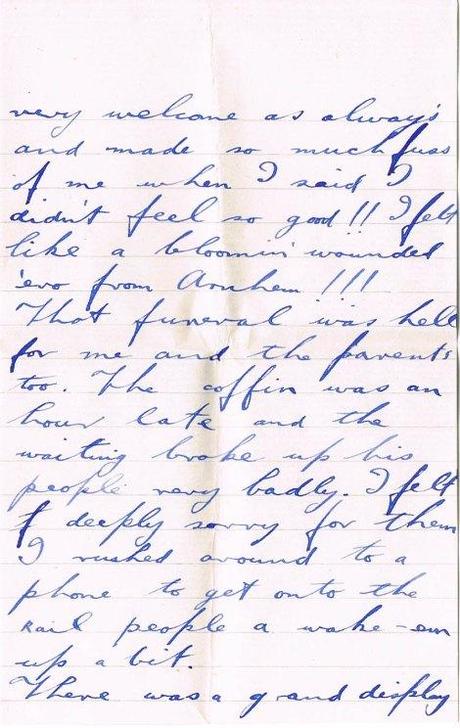 very welcome as always
and made so much fuss
of me when I said I
didn't feel so good!! I felt
like a bloomin' wounded
'ero from Arnhem !!!
That funeral was hell
for me and the parents
too. The coffin was an
hour late and the
waiting broke up his
people very badly. I felt
deeply sorry for them
I rushed around to a
phone to get onto the
Rail people a wake-em
up a bit.
There was a grand display